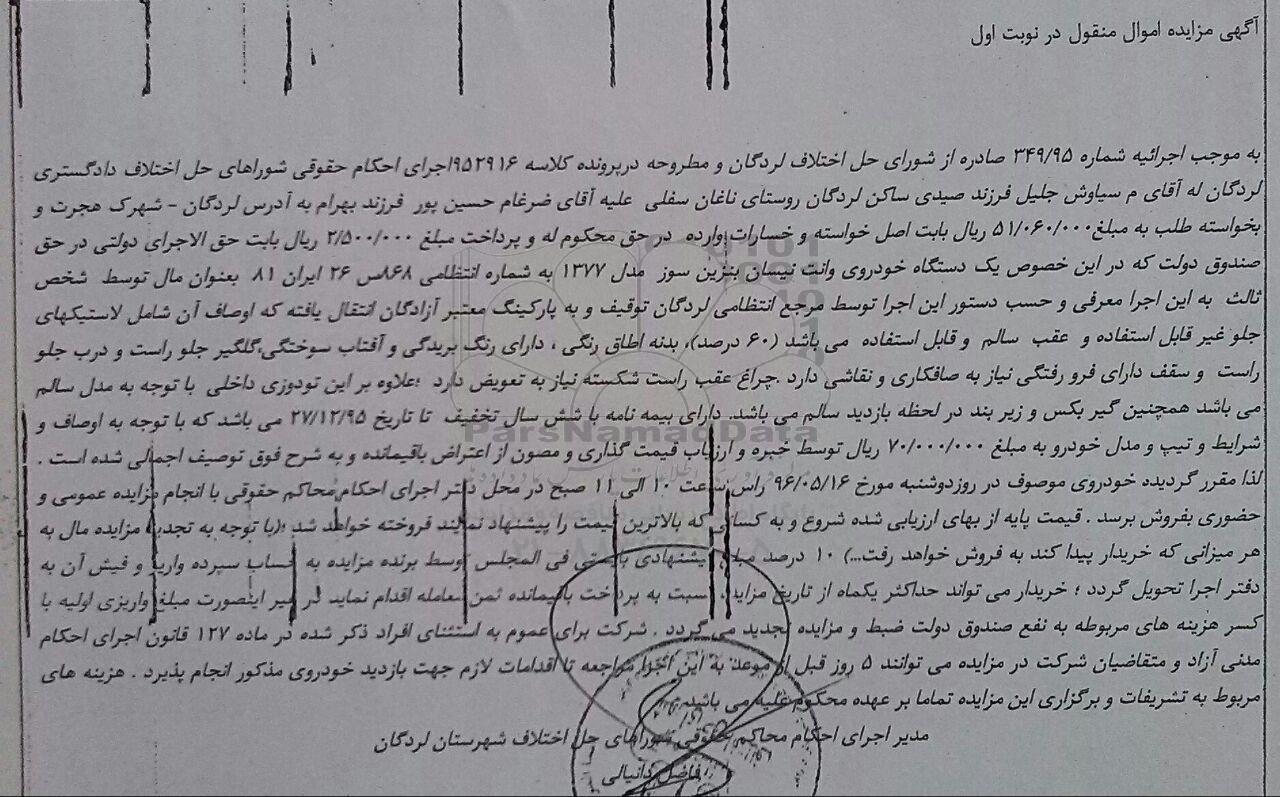 آگهی مزایده اموال منقول در نوبت اول
به موجب اجرائیه شماره ۳۴۹/۹۵ صادره از شورای حل اختلاف لردگان و مطروحه درپرونده کلاسه ۹۵۲۹۱۶اجرای احکام حقوقی شوراهای حل اختلاف دادگستری
لردگان له آقای م سیاوش جلیل فرزند صیدی ساکن لردگان روستای ناغان سفلی علیه آقای ضرغام حسین پور فرزند بهرام به آدرس لردگان - شهرک هجرت و
بخواسته طلب به مبلغ۵۱/۰۶۰/۰۰۰ ریال بابت اصل خواسته و خسارات وارده در حق محکوم له و پرداخت مبلغ ۲/۵۰۰/۰۰۰ ریال بابت حق الاجرای دولتی در حق
صندوق دولت که در این خصوص یک دستگاه خودروی وانت نیسان بنزین سوز مدل ۱۳۷۷ به شماره انتظامی ۸۶۸ص ۲۶ ایران ۸۱ بعنوان مال توسط شخص
ثالث به این اجرا معرفی و حسب دستور این اجرا توسط مرجع انتظامی لردگان توقیف و به پارکینگ معتبر آزادگان انتقال یافته که اوصاف آن شامل لاستیکهای
جلو غیر قابل استفاده و عقب سالم و قابل استفاده می باشد (۶۰ درصد)، بدنه اطاق رنگی ، دارای رنگ بریدگی و آفتاب سوختگی،گلگیر جلو راست و درب جلو
راست و سقف دارای فرو رفتگی نیاز به صافکاری و نقاشی دارد .چراغ عقب راست شکسته نیاز به تعویض دارد ؛علاوه بر این تودوزی داخلی با توجه به مدل سالم
می باشد همچنین گیر بکس و زیر بند در لحظه بازدید سالم می باشد. دارای بیمه نامه با شش سال تخفیف تا تاریخ ۲۷/۱۲/۹۵ می باشد که با توجه به اوصاف و
شرایط و تیپ و مدل خودرو به مبلغ ۷۰/۰۰۰/۰۰۰ ریال توسط خبره و ارزیاب قیمت گذاری و مصون از اعتراض باقیمانده و به شرح فوق توصیف اجمالی شده است .
لذا مقرر گردیده خودروی موصوف در روزدوشنبه مورخ ۹۶/۰۵/۱۶ راس ساعت ۱۰ الی ۱۱ صبح در محل دفتر اجرای احکام محاکم حقوقی با انجام مزایده عمومی و
حضوری بفروش برسد . قیمت پایه از بهای ارزیابی شده شروع و به کسانی که بالاترین قیمت را پیشنهاد نمایند فروخته خواهد شد ؛(با توجه به تجدید مزایده مال به
هر میزانی که خریدار پیدا کند به فروش خواهد رفت...) ۱۰ درصد مبلغ پیشنهادی بایستی فی المجلس توسط برنده مزایده به حساب سپرده واریز و فیش آن به
دفتر اجرا تحویل گردد ؛ خریدار می تواند حداکثر یکماه از تاریخ مزایده نسبت به پرداخت باقیمانده ثمن معامله اقدام نماید در غیر اینصورت مبلغ واریزی اولیه با
کسر هزینه های مربوطه به نفع صندوق دولت ضبط و مزایده تجدید می گردد . شرکت برای عموم به استثنای افراد ذکر شده در ماده ۱۲۷ قانون اجرای احکام
مدنی آزاد و متقاضیان شرکت در مزایده می توانند ۵ روز قبل از موعد به این اجرا مراجعه تا اقدامات لازم جهت بازدید خودروی مذکور انجام پذیرد . هزینه های
مربوط به تشریفات و برگزاری این مزایده تماما بر عهده محکوم علیه می باشید
مدیر اجرای احکام محاکم حقوقی شوراهای حل اختلاف شهرستان لردگان
فاضل دانیالی
ParsNamadData